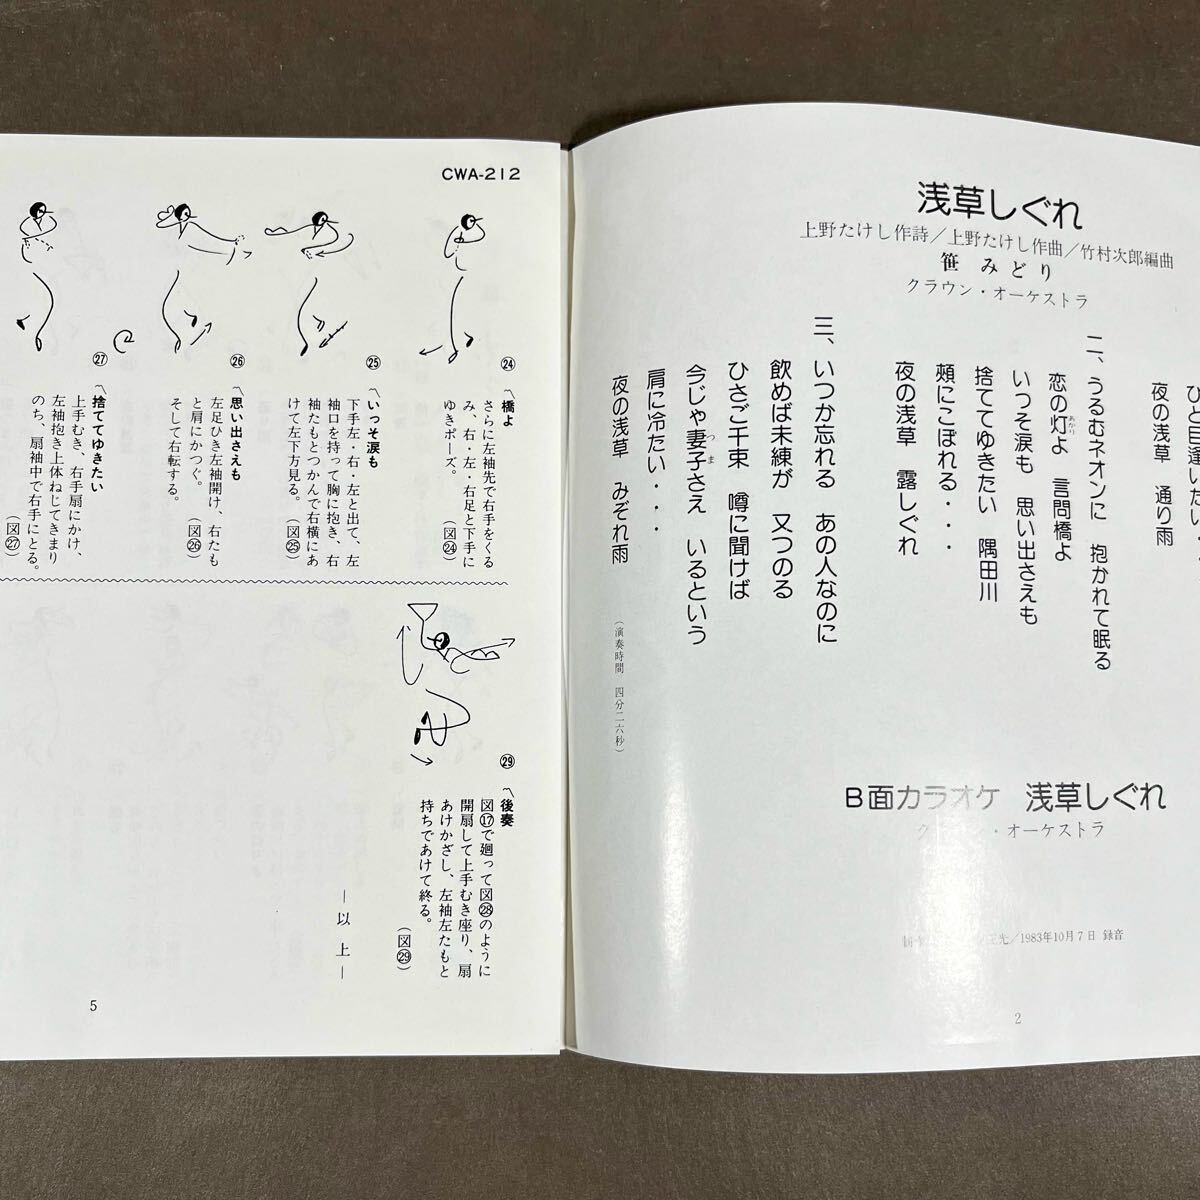 CWA-212
㉔
〽橋よ
さらに左袖先で右手をくる
み、右・左・右足と下手に
ゆきポーズ。
(図㉔)
㉕
〽いっそ涙も
下手左・右・左と出て、左
袖口を持って胸に抱き、右
袖たもとつかんで右横にあ
けて左下方見る。
(図㉕)
㉖
〽思い出さえも
左足ひき左袖開け、右たも
と肩にかつぐ。
(図㉖)
そして右転する。
㉗
〽捨ててゆきたい
上手むき、右手扇にかけ、
左袖抱き上体ねじてきまり
のち、扇袖中で右手にとる。
(図㉗)
㉙
〽後奏
図⑰で廻って図㉘のように
開扇して上手むき座り、扇
あけかざし、左袖左たもと
持ちであけて終る。
(図㉙)
―以上―
5
浅草しぐれ
上野たけし作詩/上野たけし作曲/竹村次郎編曲
笹 みどり
クラウン・オーケストラ
ひと目逢いたい・
夜の浅草 通り雨
二、うるむネオンに 抱かれて眠る
恋の灯よ 言問橋よ
あかり
いっそ涙も 思い出さえも
捨ててゆきたい 隅田川
頬にこぼれる・・・
夜の浅草 露しぐれ
三、いつか忘れる あの人なのに
飲めば未練が 又つのる
ひさご千束 噂に聞けば
今じゃ妻子さえ いるという
つま
肩に冷たい・・・
夜の浅草 みぞれ雨
(演奏時間 四分二六秒)
B面カラオケ 浅草しぐれ
クラウン・オーケストラ
光/1983年10月7日 録音
2